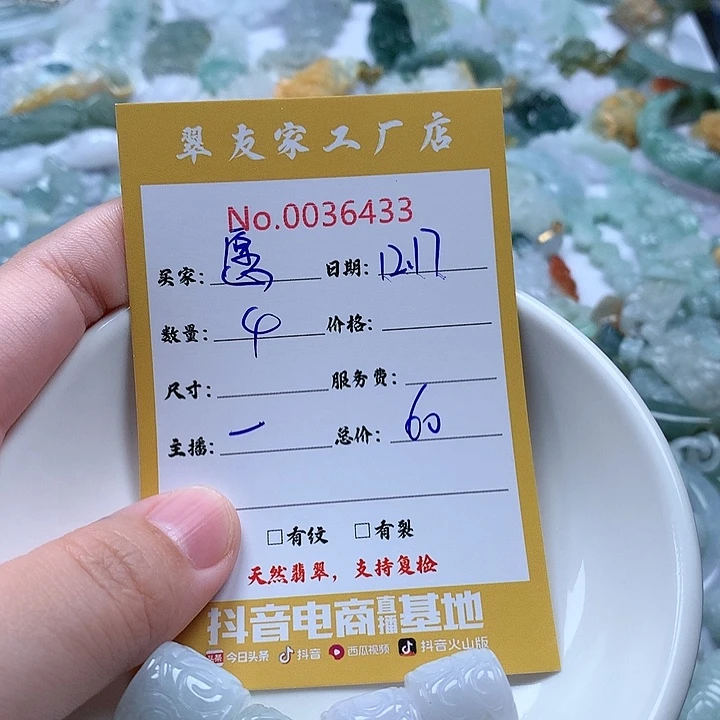 翠友家工厂店
No.0036433
买家: 日期: 12.17
数量: 4 价格:
尺寸: 服务费:
主播: 一 总价: 60
□有纹 □有裂
天然翡翠，支持复检
抖音电商直播基地
头条 今日头条 抖音 西瓜视频 抖音火山版